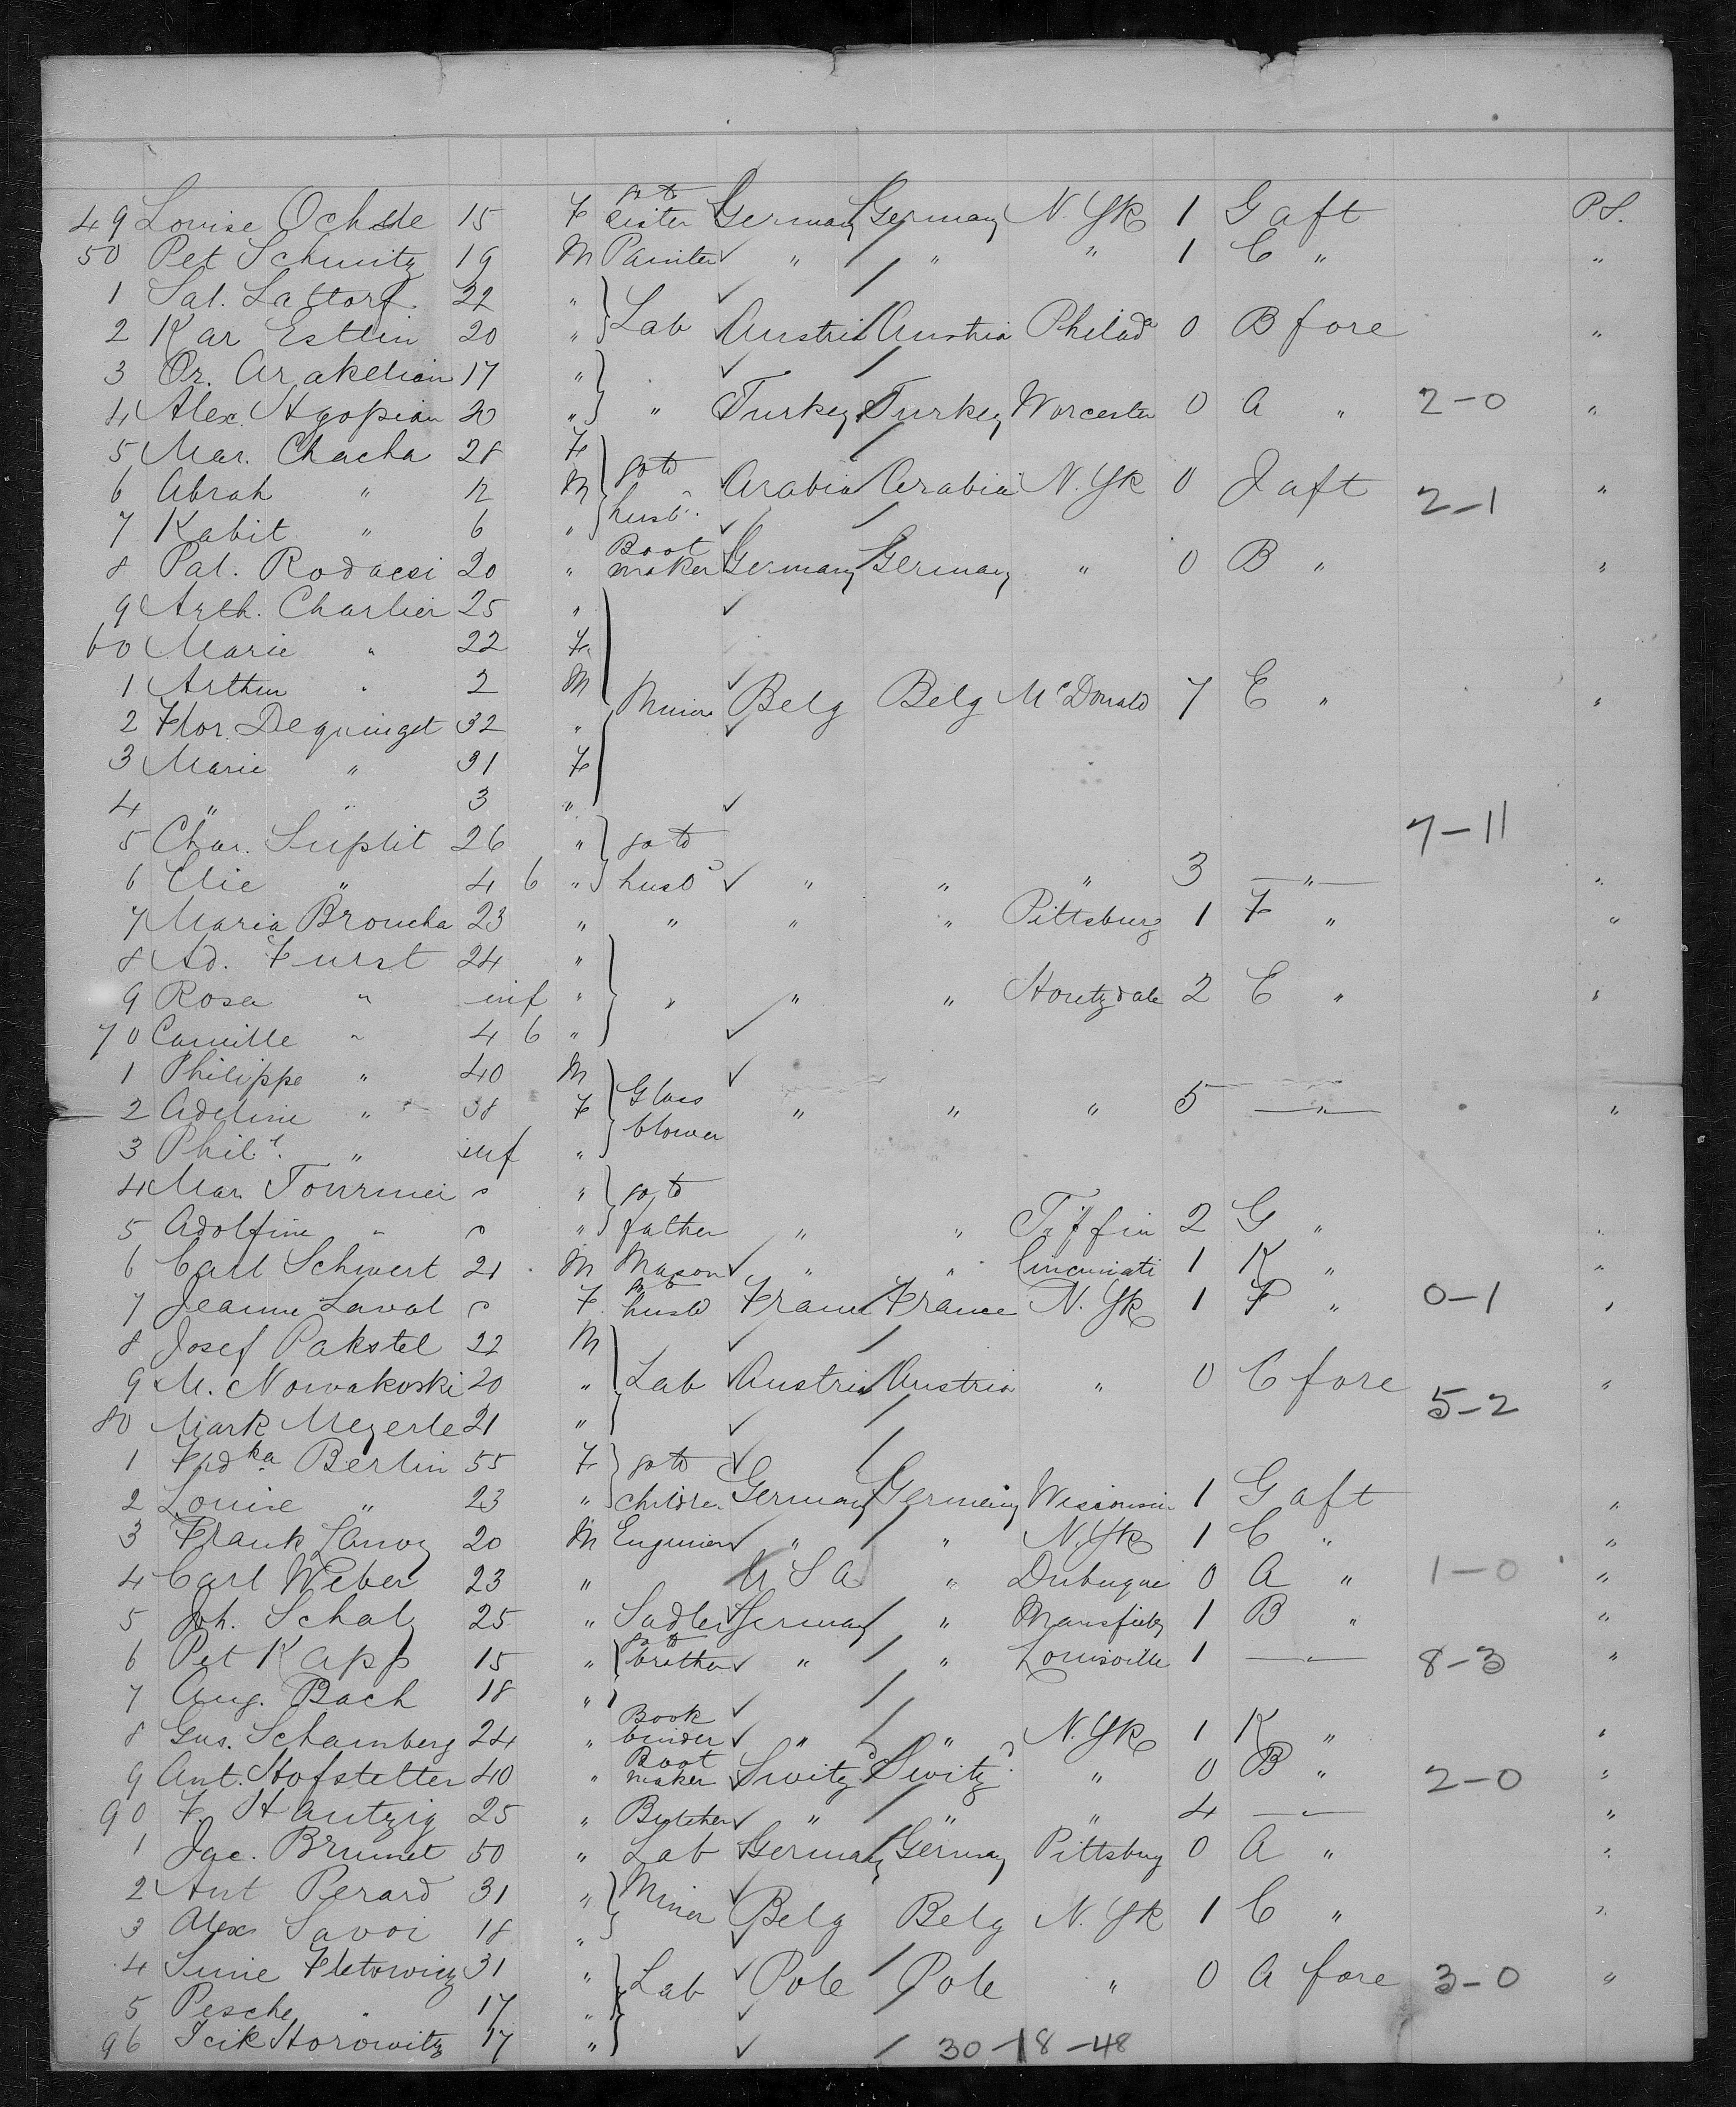 49 Louise Ochsle 15 F go to sister Germany Germany N. Yk 1 G aft P.S.
50 Pet Schmitz 19 M Painter " " " 1 C " "
1 Sal. Lattorf 22 "
2 Kar Estlin 20 " Lab Austria Austria Philada 0 B fore "
3 Or. Arakelian 17 "
4 Alex. Agopian 20 " " Turkey Turkey Worcester 0 A " 2-0 "
5 Mar. Chacha 28 F
6 Abrah " 12 M go to husbd. Arabia Arabia N. Yk 0 J aft 2-1 "
7 Kabit " 6 "
8 Pal. Rodacsi 20 " Boot maker Germany Germany " 0 B " "
9 Arth. Charlier 25 "
60 Marie " 22 F
1 Arthur " 2 M Miner Belg Belg McDonald 7 E " "
2 Flor. Dequinget 32 "
3 Marie " 31 F
4 " " 3 "
5 Char. Suplit 26 " go to 7-11
6 Elie " 4 6 " husbd " " " 3 " "
7 Maria Broucha 23 " " " " Pittsburg 1 F " "
8 Ad. Furst 24 "
9 Rosa " inf " " " " Houtzdale 2 C " "
70 Camille " 4 6 "
1 Philippe " 40 M
2 Adeline " 38 F Glass blower " " " 5 " "
3 Phil. " inf "
4 Mar. Tourmei s " go to
5 Adolfine " s " father " " Tiffin 2 G " "
6 Carl Schwert 21 M Mason " " Cincinnati 1 K " "
7 Jeanne Laval s F go to husbd France France N. Yk 1 F " 0-1 "
8 Josef Pakstel 22 M
9 M. Nowakoski 20 " Lab Austria Austria " 0 C fore 5-2 "
80 Mark Mezerle 21 "
1 Frdka Berlin 55 F go to
2 Louise " 23 " children Germany Germany Wisconsin 1 G aft "
3 Frank 20 M Engineer " " N. Yk 1 C " "
4 Carl Weber 23 " U S A " Dubuque 0 A " 1-0 "
5 Joh. Schalz 25 " Sadler Germany " Mansfield 1 B " "
6 Pet Kapp 15 " go to brother " " Louisville 1 " 8-3 "
7 Aug. Bach 18 "
8 Gus. Schamberg 24 " Book binder " " N. Yk 1 K " "
9 Ant. Hofstetter 40 " Boot maker Switzd Switzd " 0 B " 2-0 "
90 F. Hantzig 25 " Butcher " " " 4 " "
1 Jac. Brunet 50 " Lab Germany Germany Pittsburg 0 A " "
2 Ant Perard 31 " Miner Belg Belg N. Yk 1 C " "
3 Alex Savoi 18 "
4 Sime Fletowicz 31 " Lab Pole Pole " 0 A fore 3-0 "
5 Pesche " 17 "
96 Icik Horowitz 17 " 30-18-48